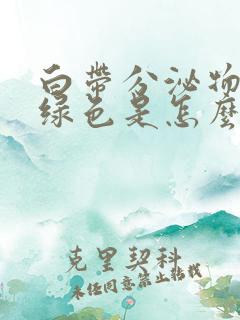 白带分泌物
绿色是怎麽
克里契科
未经同意禁止转载